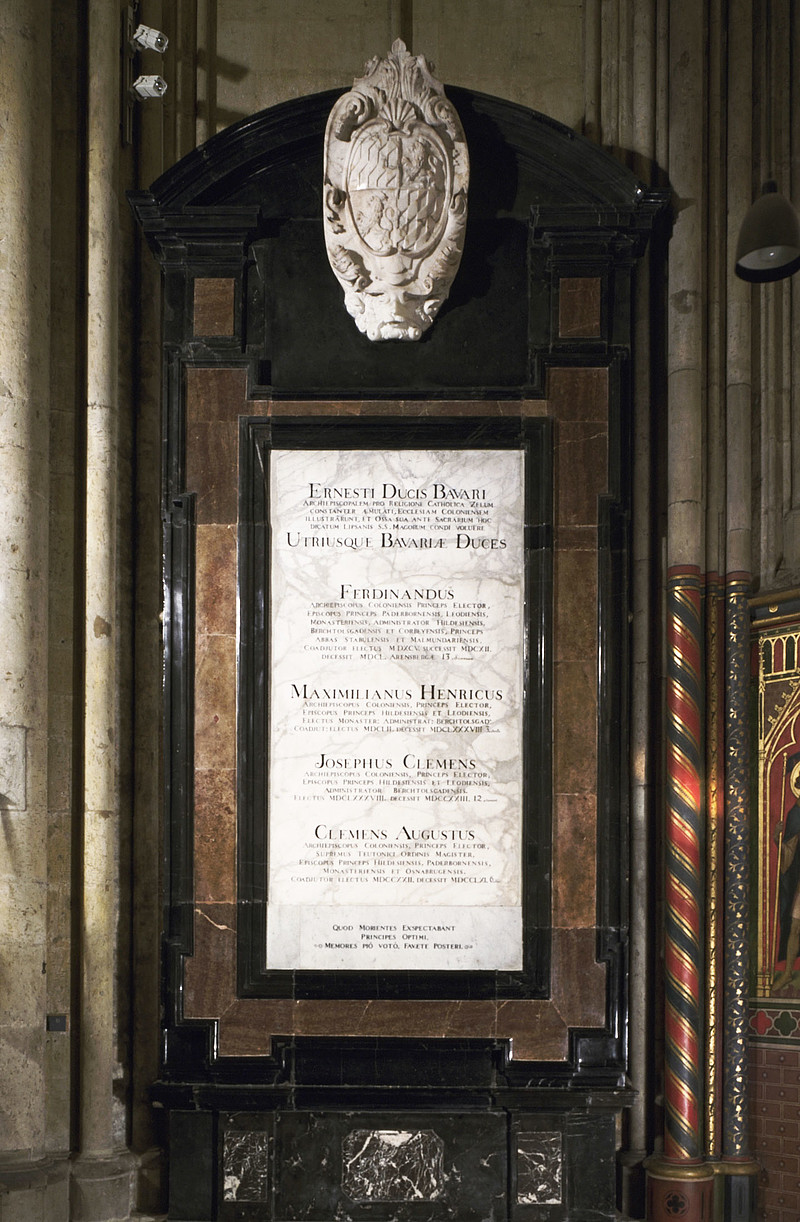 ERNESTI DUCIS BAVARI
ARCHIEPISCOPALEM PRO RELIGIONE CATHOLICA ZELUM
CONSTANTER ÆMULATI, ECCLESIAM COLONIENSEM
ILLUSTRÂRUNT, ET OSSA SUA ANTE SACRARIUM HOC
DICATUM LIPSANIS S.S. MAGORUM CONDI VOLUÊRE
UTRIUSQUE BAVARIÆ DUCES
FERDINANDUS
ARCHIEPISCOPUS COLONIENSIS PRINCEPS ELECTOR,
EPISCOPUS PRINCEPS PADERBORNENSIS, LEODIENSIS,
MONASTERIENSIS, ADMINISTRATOR HILDESIENSIS,
BERCHTOLSGADENSIS ET CORBEYENSIS, PRINCEPS
ABBAS STABULENSIS ET MALMUNDARIENSIS,
COADJUTOR ELECTUS MDXCV. SUCCESSIT MDCXII.
DECESSIT MDCL. ARENSBERGÆ 13
MAXIMILIANUS HENRICUS
ARCHIEPISCOPUS COLONIENSIS, PRINCEPS ELECTOR,
EPISCOPUS PRINCEPS HILDESIENSIS ET LEODIENSIS,
ELECTUS MONASTER: ADMINISTRAT: BERCHTOLSGAD:
COADJUT: ELECTUS MDCLII. DECESSIT MDCLXXXVIII
JOSEPHUS CLEMENS
ARCHIEPISCOPUS COLONIENSIS, PRINCEPS ELECTOR,
EPISCOPUS PRINCEPS HILDESIENSIS ET LEODIENSIS,
ADMINISTRATOR BERCHTOLSGADENSIS.
ELECTUS MDCLXXXVIII. DECESSIT MDCCXXIII. 12
CLEMENS AUGUSTUS
ARCHIEPISCOPUS COLONIENSIS, PRINCEPS ELECTOR,
SUPREMUS TEUTONICI ORDINIS MAGISTER,
EPISCOPUS PRINCEPS HILDESIENSIS, PADERBORNENSIS,
MONASTERIENSIS ET OSNABRUGENSIS,
COADJUTOR ELECTUS MDCCXXII, DECESSIT MDCCLXI.
QUOD MORIENTES EXSPECTABANT
PRINCIPES OPTIMI,
MEMORES PIÔ VOTÔ, FAVETE POSTERI.